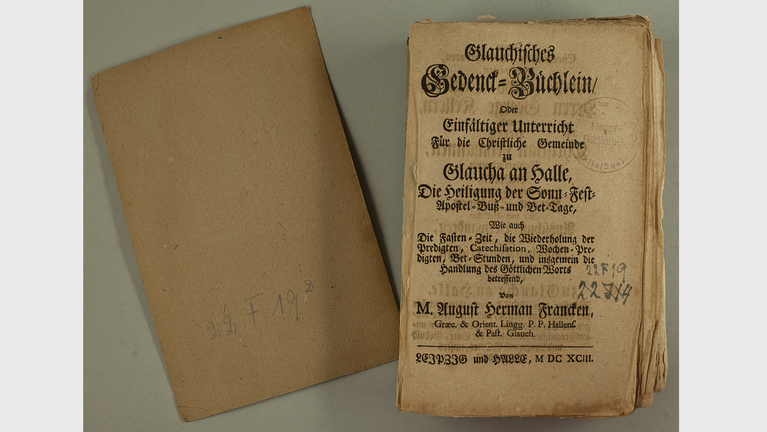 Glauchisches
Gedenck-Büchlein/
Oder
Einfältiger Unterricht
Für die Christliche Gemeinde
zu
Glaucha an Halle,
Die Heiligung der Sonn-Fest-
Apostel-Buß-und Bet-Tage,
Wie auch
Die Fasten-Zeit, die Wiederholung der
Predigten, Catechisation, Wochen-Pre-
digten, Bet-Stunden, und insgemein die
Handlung des Göttlichen Worts
betreffend,
Von
M. August Herman Francken,
Græc. & Orient. Lingg. P. P. Hallens.
& Past. Glauch.
LEIPZIG und HALLE, M DC XCIII.
22 F 19
22 F 19²